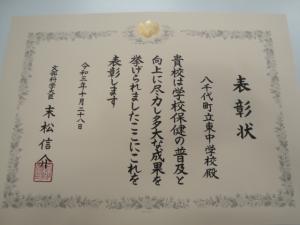 表彰状
八千代町立東中学校殿
貴校は学校保健の普及と
向上に尽力し多大な成果を
挙げられましたここにこれを
表彰します
令和三年十月二十八日
文部科学大臣 末松信介